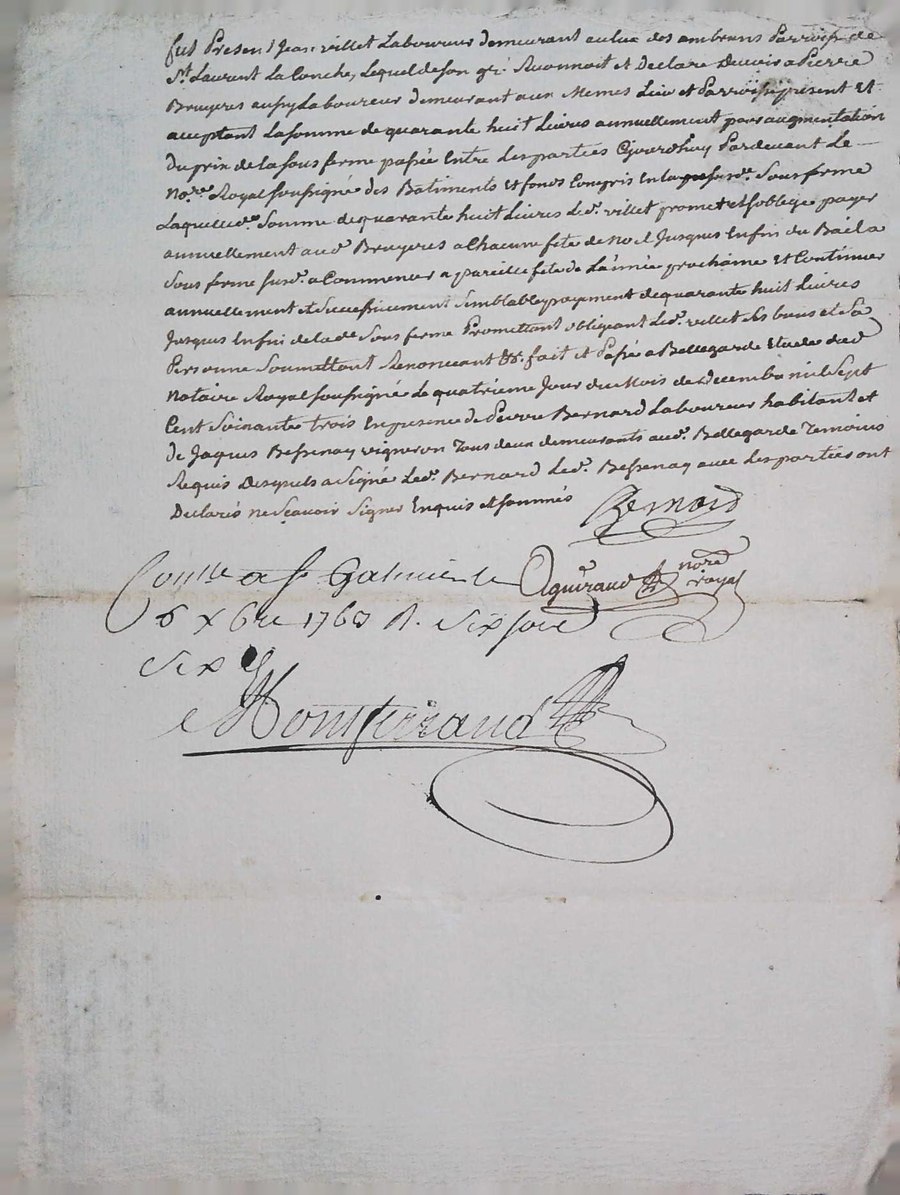 fut Present Jean villet Laboureur demeurant au lieu des ambruns Parroisse de
St. Laurent La Conche, Lequel de son gré Reconnoit et Declare Devoir a Pierre
Bruyeres aussy Laboureur demeurant aux Memes Lieu et Parroisse present Et
acceptant La somme de quarante huit Livres annuellement pour augmentation
du prix de la sous ferme passée Entre Les parties Cejourdhuy Pardevant Le
No.re Royal soussigné des Batiments Et fonds Compris En la susd.e Sous ferme
Laquelle d.e Somme de quarante huit Livres Led. villet promet et soblige payer
annuellement aud. Bruyeres a Chacune fete de noel Jusques Enfin du Bail a
Sous ferme susd. a Commencer a pareille fete de L'année prochaine Et Continuer
annuellement et Successivement semblable payement de quarante huit Livres
Jusques Enfin de lad.e Sous ferme Promettant obligeant Led. villet Ses biens et Sa
Personne Soumettant Renonceant &c. fait et Passé a Bellegarde Etude dud.
Notaire Royal soussigné Le quatrieme Jour du Mois de Decembre mil Sept
Cent Soixante trois En presence de Pierre Bernard Laboureur habitant et
de Jaques Bessenay vigneron Tous deux demeurants aud. Bellegarde Temoins
Requis Desquels a Signé Led. Bernard Led. Bessenay avec Les parties ont
Declarés ne Sçavoir Signer Enquis et sommés
Bernard
Conllé a St Galmier le
Aguiraud nore royal
6 xbre 1763 R. Six sols
Six
Montferraud